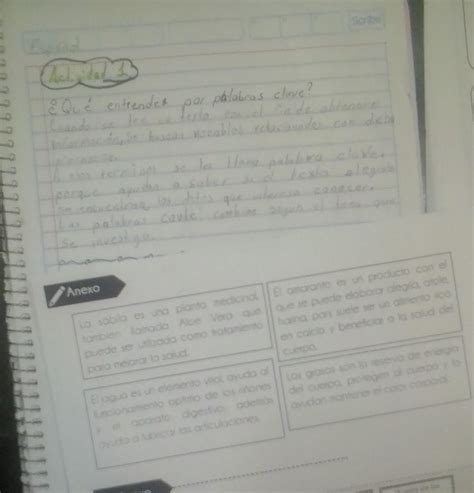 Scribe
Español
Actividad 1
¿Qué entiendes por palabras clave?
Cuando se lee un texto con el fin de obtener
información, se buscan vocablos relacionados con dicha
información.
A esos términos se les llama palabra clave,
porque ayudan a saber si el texto elegido
se encuentran los que interesa conocer.
Las palabras cambian según el tema que
se investiga.
Anexo
La sábila es una planta medicinal,
también llamada Aloe Vera que
puede ser utilizada como tratamiento
para mejorar la salud.
El amaranto es un producto con el
que se puede elaborar alegría, atole,
harina, pan suele ser un alimento rico
en calcio y beneficiar a la salud del
cuerpo.
El agua es un elemento vital, ayuda al
funcionamiento óptimo de los riñones
y el aparato digestivo; además
ayuda a lubricar las articulaciones.
Las grasas son la reserva de energía
del cuerpo, protegen al cuerpo y lo
ayudan mantener el calor corporal.